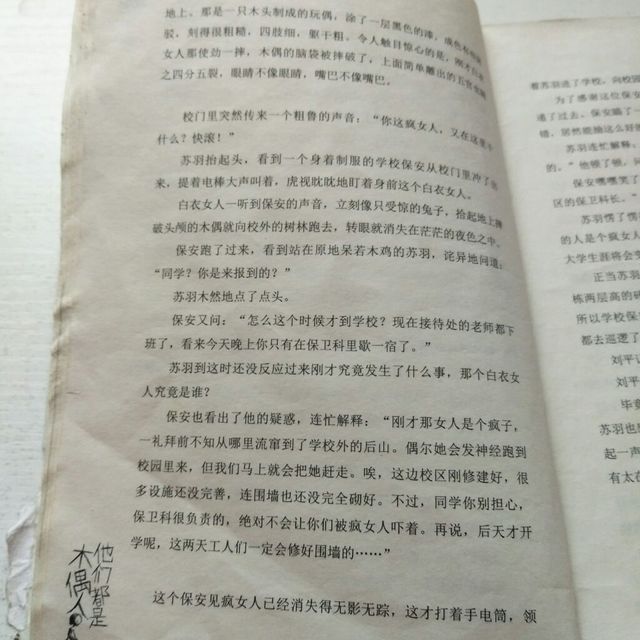 地上。那是一只木头制成的玩偶，涂了一层黑色的漆，成色有些斑
驳，刻得很粗糙，四肢细，躯干粗。令人触目惊心的是，刚才白衣
女人那使劲一摔，木偶的脑袋被摔破了，上面简单雕出的五官也随
之四分五裂，眼睛不像眼睛，嘴巴不像嘴巴。
校门里突然传来一个粗鲁的声音：“你这疯女人，又在这里干
什么？快滚！”
苏羽抬起头，看到一个身着制服的学校保安从校门里冲了出
来，提着电棒大声叫着，虎视眈眈地盯着身前这个白衣女人。
白衣女人一听到保安的声音，立刻像只受惊的兔子，拾起地上摔
破头颅的木偶就向校外的树林跑去，转眼就消失在茫茫的夜色之中。
保安跑了过来，看到站在原地呆若木鸡的苏羽，诧异地问道：
“同学？你是来报到的？”
苏羽木然地点了点头。
保安又问：“怎么这个时候才到学校？现在接待处的老师都下
班了，看来今天晚上你只有在保卫科里歇一宿了。”
苏羽到这时还没反应过来刚才究竟发生了什么事，那个白衣女
人究竟是谁？
保安也看出了他的疑惑，连忙解释：“刚才那女人是个疯子，
一礼拜前不知从哪里流窜到了学校外的后山。偶尔她会发神经跑到
校园里来，但我们马上就会把她赶走。唉，这边校区刚修建好，很
多设施还没完善，连围墙也还没完全砌好。不过，同学你别担心，
保卫科很负责的，绝对不会让你们被疯女人吓着。再说，后天才开
学呢，这两天工人们一定会修好围墙的……”
这个保安见疯女人已经消失得无影无踪，这才打着手电筒，领
他们都是
木偶人
着苏羽进了学校，向校园
为了感谢这位保安
递了过去。保安瞄了一
错，居然能抽这么好
苏羽连忙解释：
的。”他顿了顿，问
保安嘿嘿笑了
区的保卫科长。”
苏羽愣了愣
的人是个疯女人
大学生涯将会变
正当苏羽
栋两层高的砖
所以学校保
都去巡逻了
刘平
刘平
毕竟
苏羽也
起一声
有太在